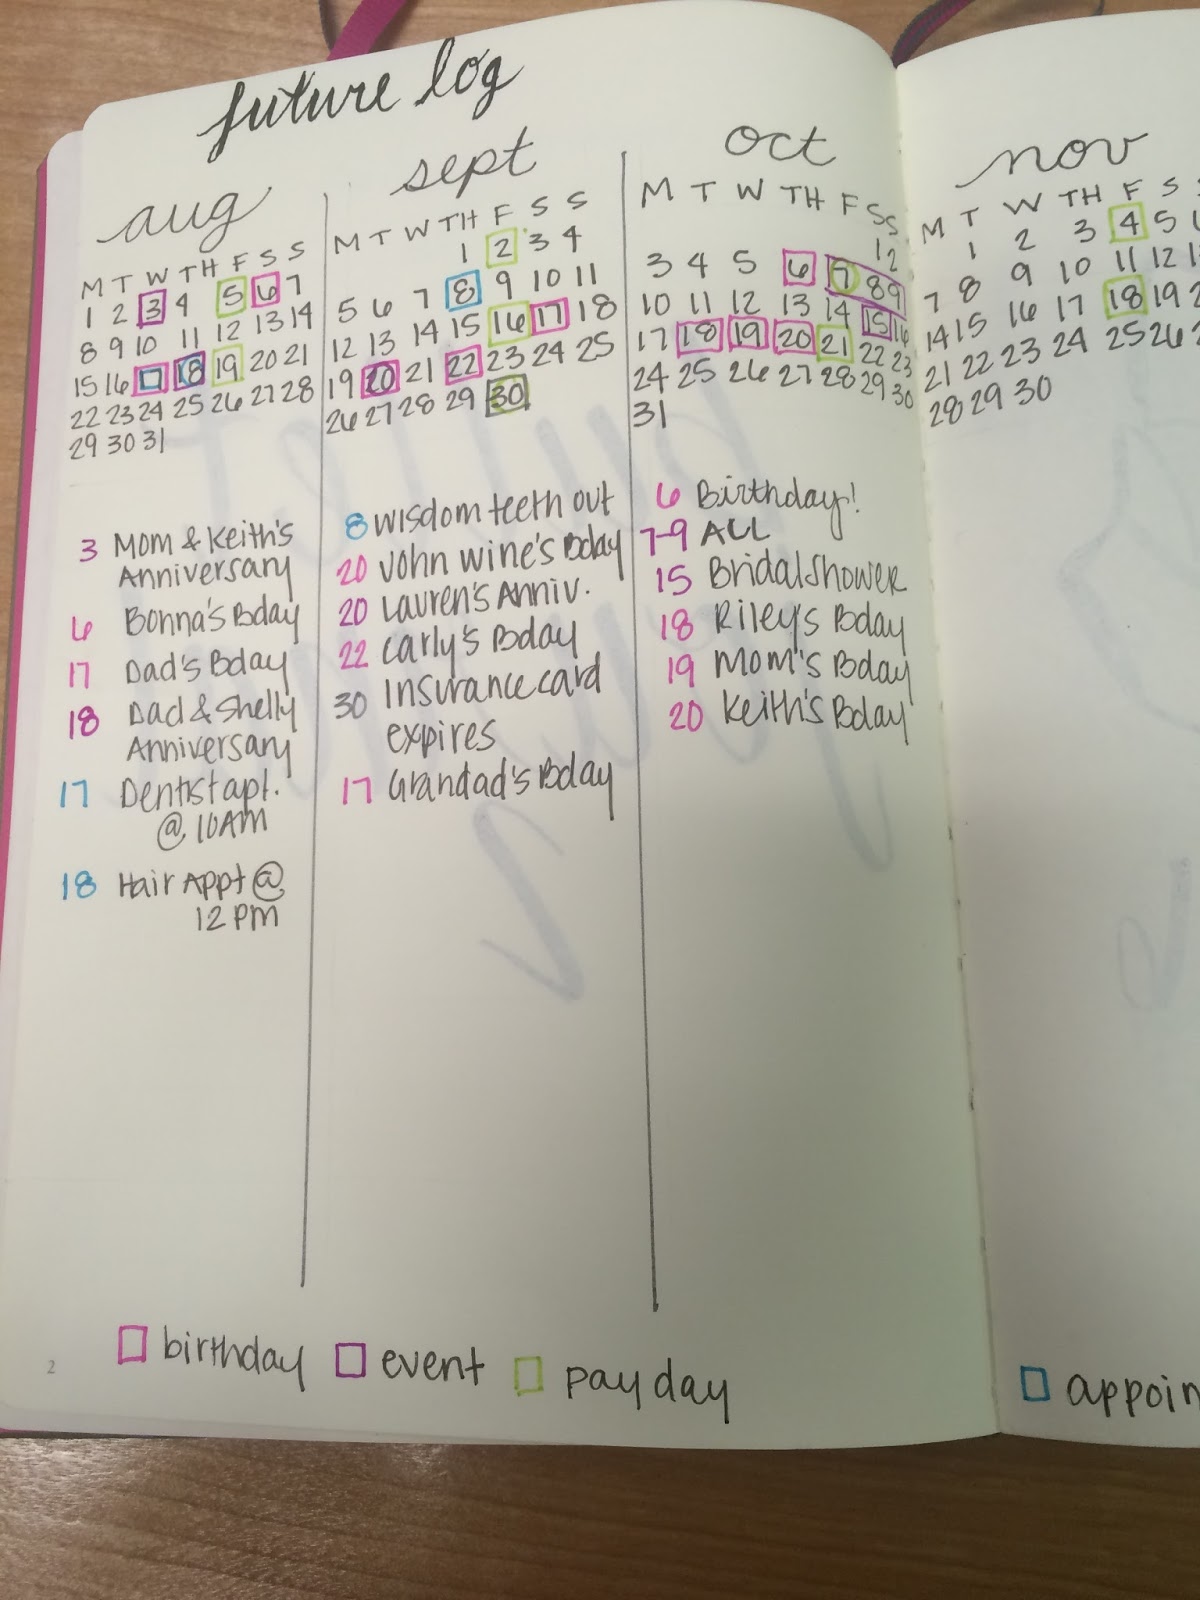 future log
aug
M T W TH F S S
1 2 3 4 5 6 7
8 9 10 11 12 13 14
15 16 17 18 19 20 21
22 23 24 25 26 27 28
29 30 31
3 Mom & Keith's
Anniversary
6 Bonna's Bday
17 Dad's Bday
18 Dad & Shelly
Anniversary
17 Dentist apt.
@ 10AM
18 Hair Appt @
12 PM
sept
M T W TH F S S
1 2 3 4
5 6 7 8 9 10 11
12 13 14 15 16 17 18
19 20 21 22 23 24 25
26 27 28 29 30
8 wisdom teeth out
20 John Wine's Bday
20 Lauren's Anniv.
22 Carly's Bday
30 Insurance card
expires
17 Grandad's Bday
oct
M T W TH F S S
1 2
3 4 5 6 7 8 9
10 11 12 13 14 15 16
17 18 19 20 21 22 23
24 25 26 27 28 29 30
31
6 Birthday!
7-9 ALL
15 Bridal Shower
18 Riley's Bday
19 Mom's Bday
20 Keith's Bday
nov
M T W TH F S S
1 2 3 4 5
7 8 9 10 11 12
14 15 16 17 18 19
21 22 23 24 25 26
28 29 30
birthday event pay day
2
appoin